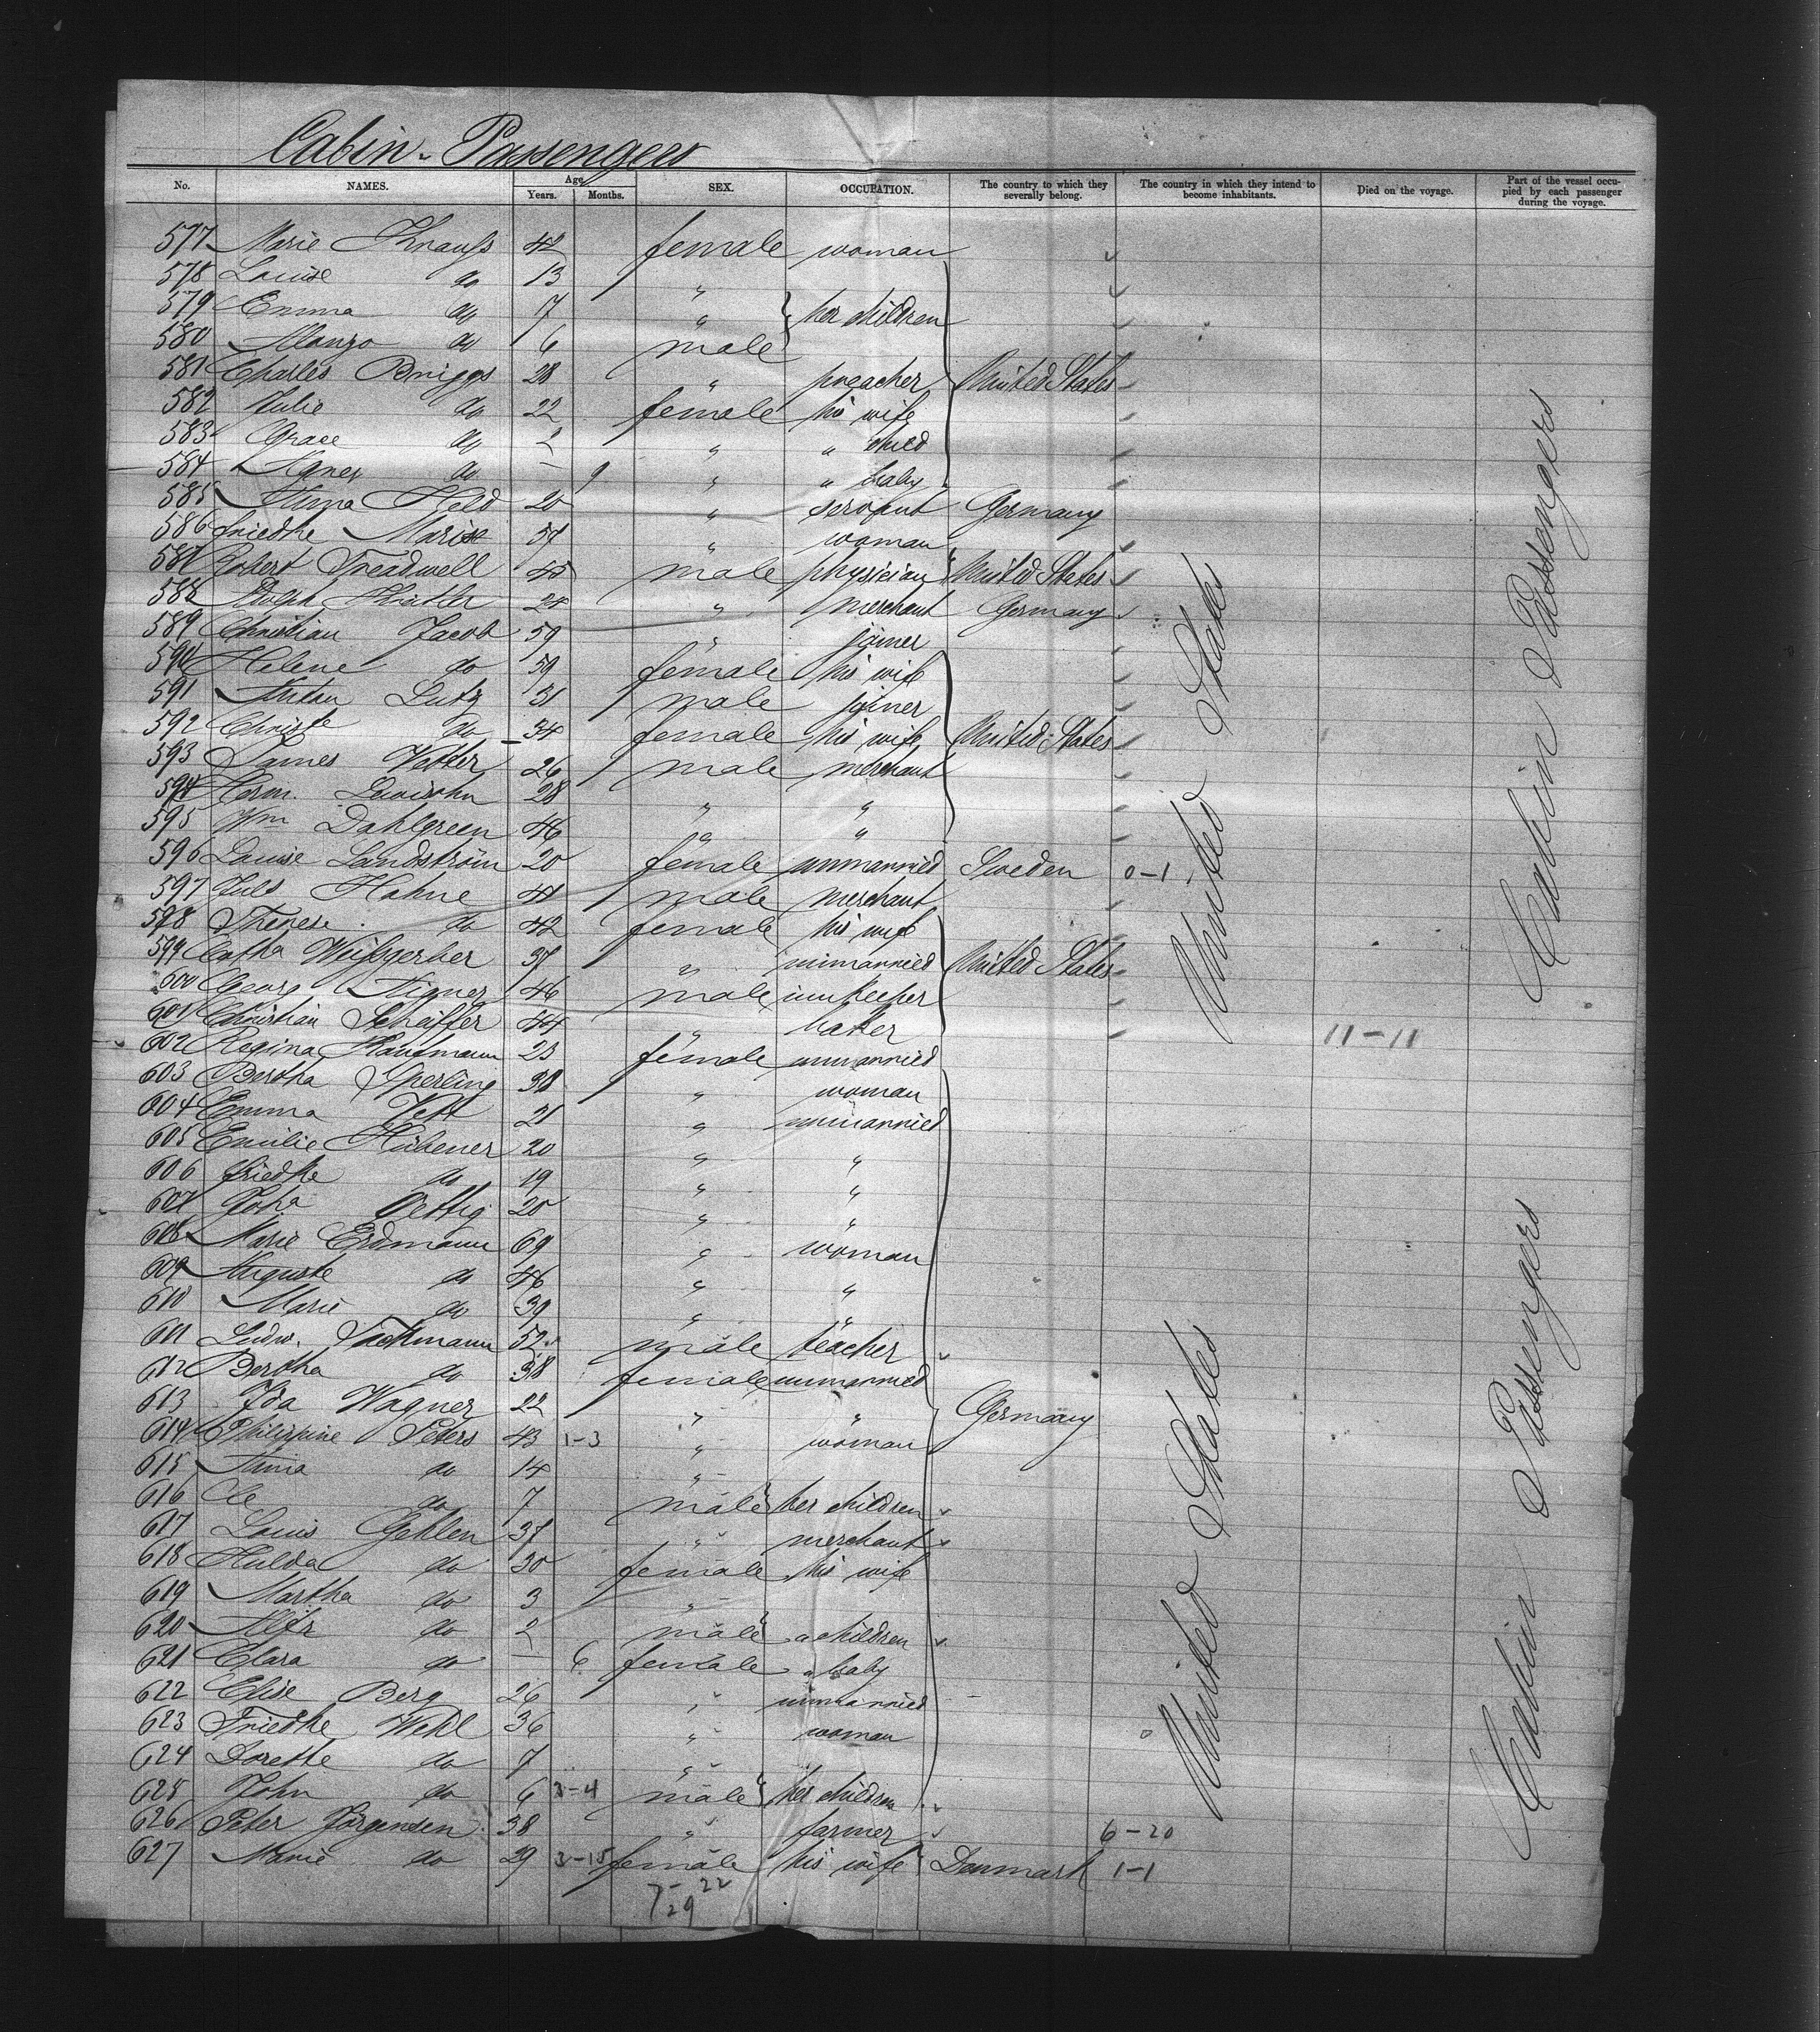 Cabin - Passengers
No. NAMES. Age Years. Months. SEX. OCCUPATION. The country to which they severally belong. The country in which they intend to become inhabitants. Died on the voyage. Part of the vessel occupied by each passenger during the voyage.
577 Marie Knauß 42 female woman
578 Louise do 13 "
579 Emma do 7 " } her children
580 Alonzo do 6 male
581 Charles Briggs 28 " preacher United States
582 Julie do 22 female his wife
583 Grace do 2 " " child
584 Agnes do - 9 " " baby
585 Anna Held 20 " servant Germany
586 Friedke Marie 57 " woman
587 Robert Treadwell 45 male physician United States
588 Adolph 24 " merchant Germany
589 Christian Jacob 59 " joiner
590 Helene do 59 female his wife
591 Anton Lutz 31 male joiner
592 Christe do 34 female his wife United States
593 James Vetter 26 male merchant
594 Herm. Lewisohn 28 " "
595 Wm Dahlgreen 46 " "
596 Louise Landström 20 female unmarried Sweden 0-1
597 Juls Hahne 41 male merchant
598 Therese do 42 female his wife
599 Catha Weißgerber 37 " unmarried United States
600 Georg Aigner 46 male innkeeper
601 Christian Scheiffer 44 " baker 11-11
602 Regina Kaufmann 23 female unmarried
603 Bertha Sperling 38 " woman
604 Emma Veit 21 " unmarried
605 Emilie Hübener 20 " "
606 Friedke do 19 " "
607 Joha Oettig 20 " "
608 Marie Erdmann 69 " woman
609 Auguste do 46 " "
610 Marie do 39 " "
611 Ludw. Tuckmann 52 male teacher
612 Bertha do 38 female unmarried
613 Ida Wagner 22 " " Germany
614 Philippine Peters 43 1-3 " woman
615 Anna do 14 "
616 do 7 male her children
617 Louis Gehlen 37 " merchant
618 Hulda do 30 female his wife
619 Martha do 3 "
620 Alfr do 2 male " children
621 Clara do - 6 female " baby
622 Elise Berg 26 " unmarried
623 Friedke Wehl 36 " woman
624 Dorethe do 7 "
625 John do 6 3-4 male her children
626 Peter Jörgensen 38 " farmer 6-20
627 Marie do 29 3-15 female his wife Denmark 1-1
7-22
29
United States
United States
Cabin Passengers
Cabin Passengers